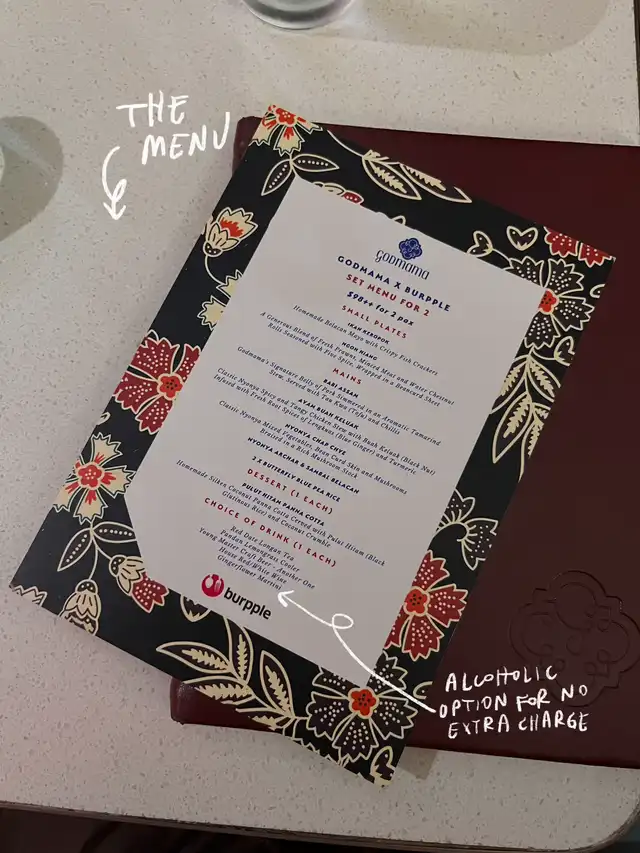 THE
MENU
GODMAMA
GODMAMA X BURPPLE
SET MENU FOR 2
$98++ for 2 pax
SMALL PLATES
IKAN KEROPOK
Homemade Belacan Mayo with Crispy Fish Crackers
NGOH HIANG
A Generous Blend of Fresh Prawns, Minced Meat and Water Chestnut
Rolls Seasoned with Five Spice, Wrapped in a Beancurd Sheet
MAINS
BABI ASSAM
Godmama's Signature Belly of Pork Simmered in an Aromatic Tamarind
Stew, Served with Tau Kwa (Tofu) and Chillis
AYAM BUAH KELUAK
Classic Nyonya Spicy and Tangy Chicken Stew with Buah Keluak (Black Nut)
Infused with Fresh Root Spices of Lengkuas (Blue Ginger) and Turmeric
NYONYA CHAP CHYE
Classic Nyonya Mixed Vegetables, Bean Curd Skin and Mushrooms
Braised in a Rich Mushroom Stock
NYONYA ARCHAR & SAMBAL BELACAN
2 X BUTTERFLY BLUE PEA RICE
DESSERT (1 EACH)
PULUT HITAM PANNA COTTA
Homemade Silken Coconut Panna Cotta Served with Pulut Hitam (Black
Glutinous Rice) and Coconut Crumble
CHOICE OF DRINK (1 EACH)
Red Date Longan Tea
Pandan Lemongrass Cooler
Young Master Craft Beer - Another One
House Red/White Wine
Gingerflower Martini
burpple
ALCOHOLIC
OPTION FOR NO
EXTRA CHARGE